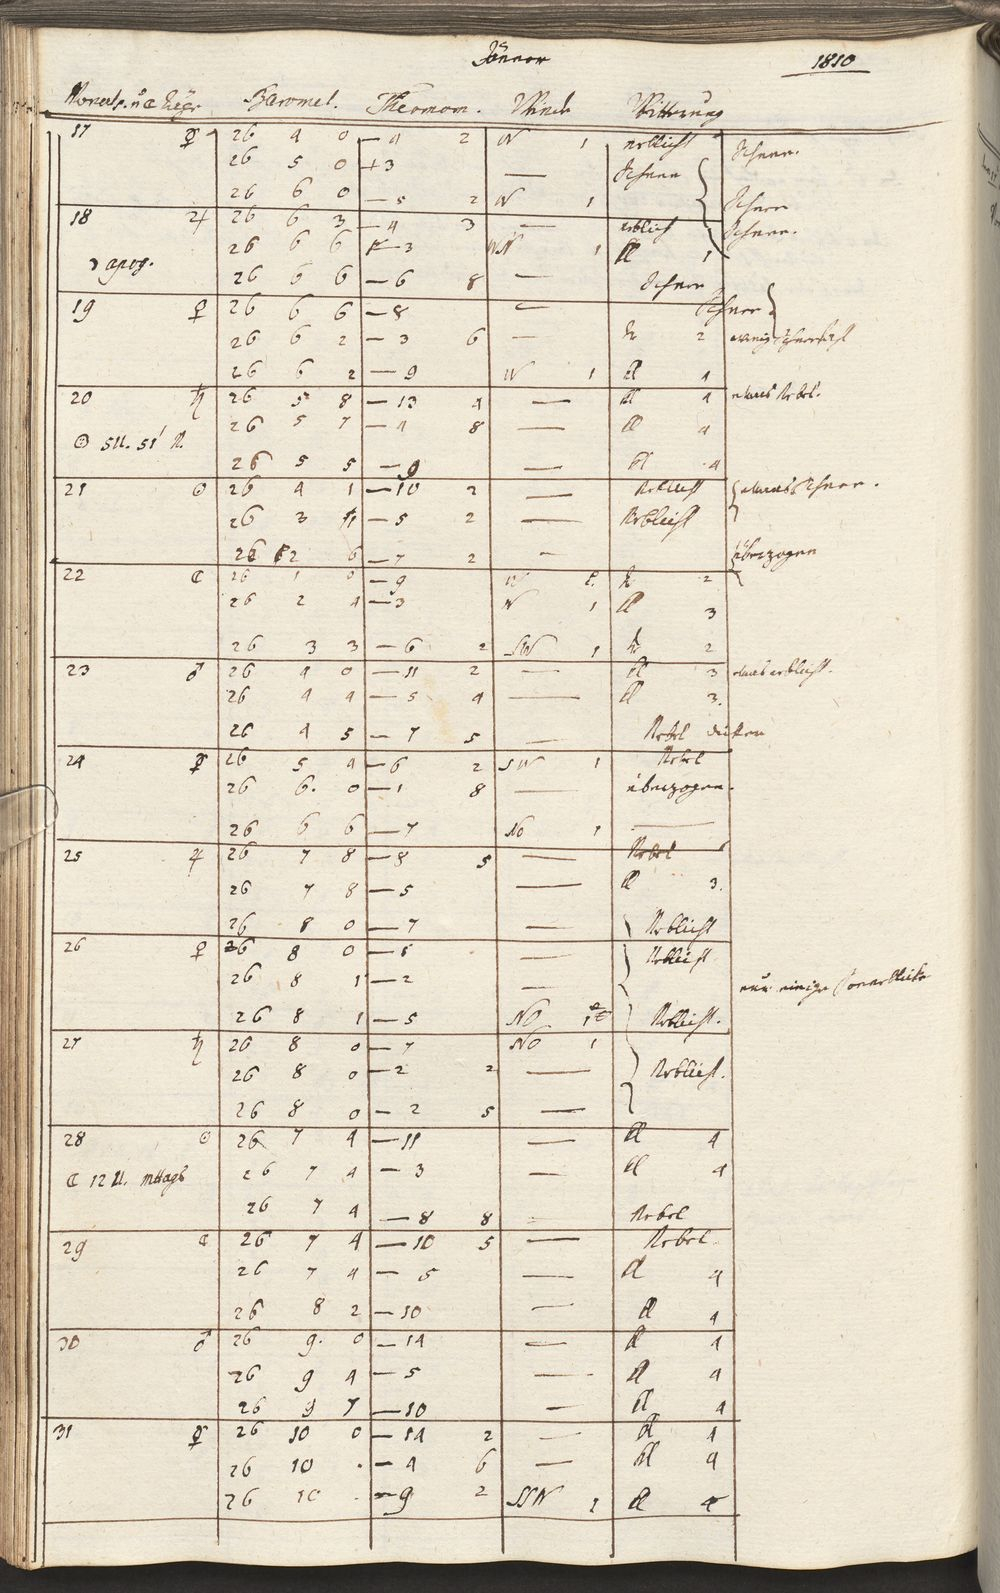 Jänner 1810
Monats. u ☾ Zeigr Baromet. Thermom. Winde Witterung
17 ☿ 26 4 0 — 4 2 W 1 neblicht Schnee.
26 5 0 +3 — Schnee
26 6 0 — 5 2 W 1 Schnee
18 ♃ 26 6 3 — 4 3 — neblich Schnee.
26 6 6 — 3 WN 1 kl 1
☽ apog.
26 6 6 — 6 8 — Schnee
19 ♀ 26 6 6 — 8 — Schnee
26 6 2 — 3 6 — tr 2 wenig
26 6 2 — 9 W 1 kl 4
20 ♄ 26 5 8 — 13 4 — kl 4 etwas Nebel.
26 5 7 — 4 8 — kl 4
☉ 5U. 51' N.
26 5 5 — 9 — kl 4
21 ☉ 26 4 1 — 10 2 — Neblicht etwas Schnee.
26 3 11 — 5 2 — Neblicht
26 2 6 — 7 2 — überzogen
22 ☾ 26 1 0 — 9 W tr 2
26 2 4 — 3 W 1 kl 3
26 3 3 — 6 2 SW 1 tr 2
23 ♂ 26 4 0 — 11 2 — kl 3 etwas neblicht.
26 4 4 — 5 4 — kl 3.
26 4 5 — 7 5 — Nebel
24 ☿ 26 5 4 — 6 2 SW 1 Nebel
26 6. 0 — 1 8 — überzogen.
26 6 6 — 7 NO 1 —
25 ♃ 26 7 8 — 8 5 — Nebel
26 7 8 — 5 — kl 3.
26 8 0 — 7 — Neblicht
26 ♀ 26 8 0 — 5 — Neblicht
26 8 1 — 2 — nur einige Sonenblicke
26 8 1 — 5 NO 1 Neblicht.
27 ♄ 26 8 0 — 7 NO 1
26 8 0 — 2 2 — Neblicht.
26 8 0 — 2 5 —
28 ☉ 26 7 4 — 11 — kl 4
☾ 12 U. mttags 26 7 4 — 3 — kl 4
26 7 4 — 8 8 — Nebel
29 ☾ 26 7 4 — 10 5 — Nebel
26 7 4 — 5 — kl 4
26 8 2 — 10 — kl 4
30 ♂ 26 9. 0 — 14 — kl 4
26 9 4 — 5 — kl 4
26 9 7 — 10 — kl 4
31 ☿ 26 10 0 — 14 2 — kl 4
26 10 . — 4 6 — kl 4
26 10 . — 9 2 SSW 1 kl 4